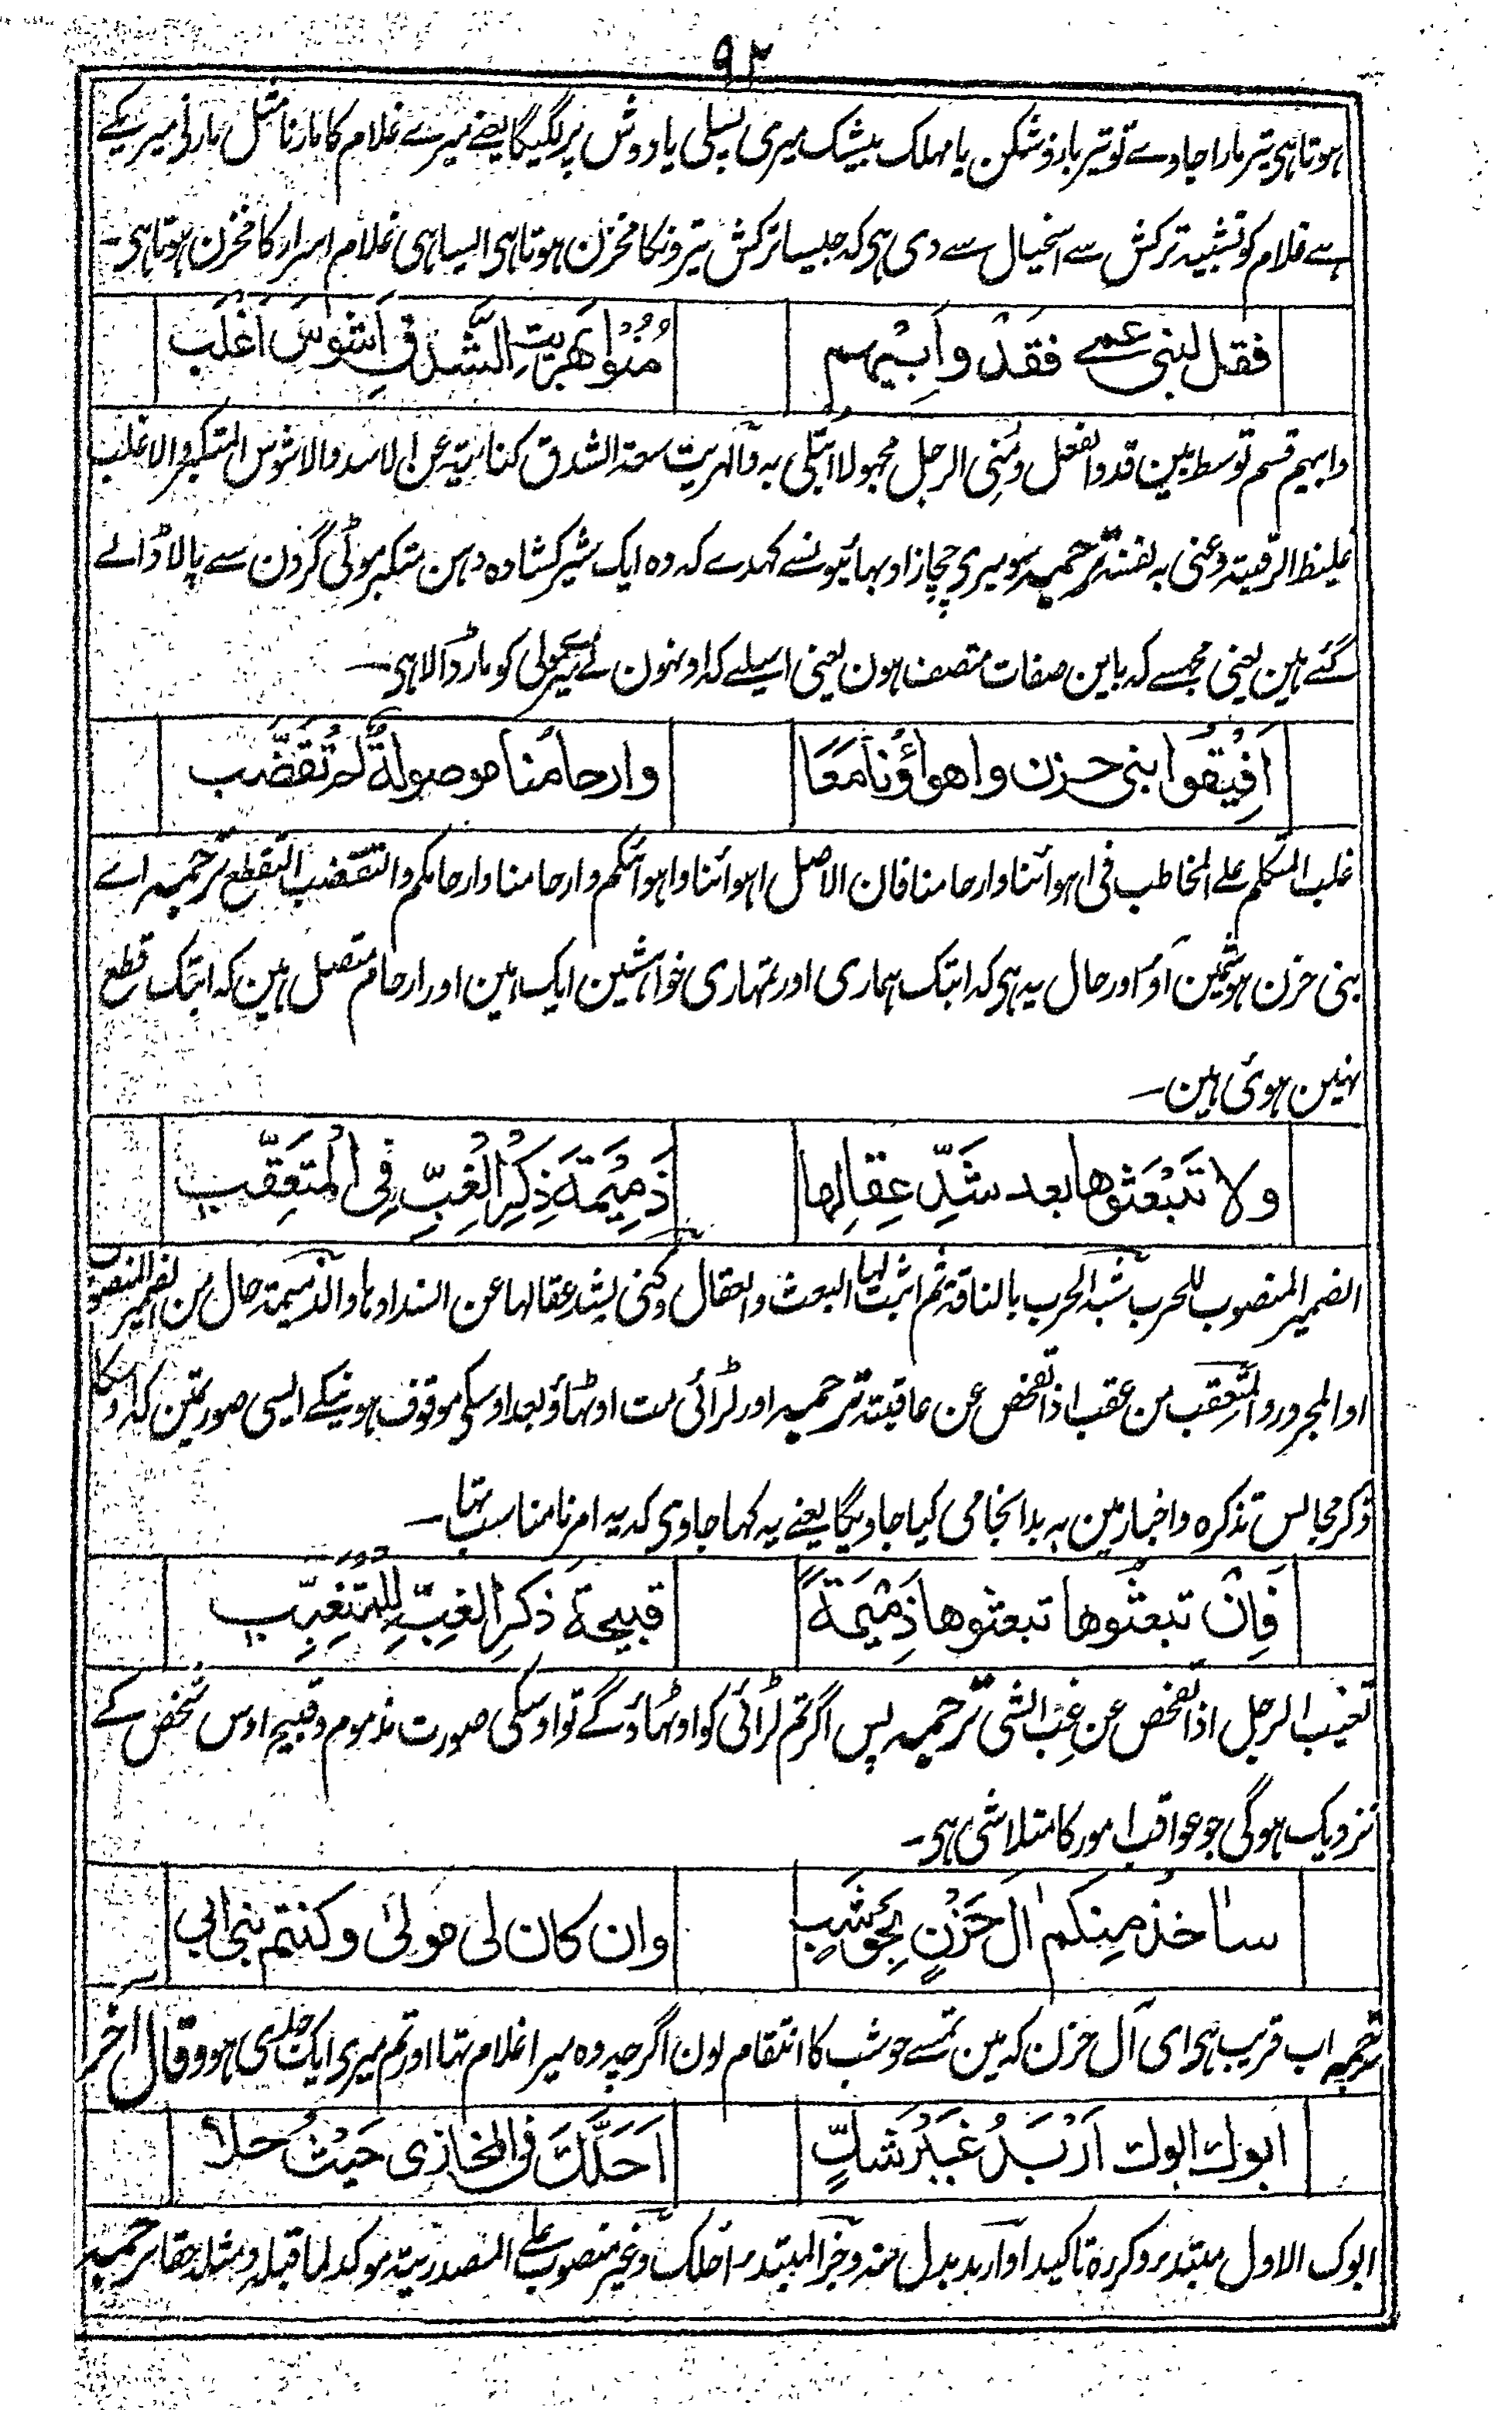 ۹۲
ہوتا ہی تیر مارا جاوے تو تیر بازو شکن یا مہلک بیشک میری پسلی یا دوش پر لگیگا یعنے میرے غلام کا مارنا مثل مارنی میریکے
ہے غلام کو تشبیہ ترکش سے اسخیال سے دی ہی کہ جیسا ترکش تیرونکا مخزن ہوتا ہی ایسا ہی غلام اسرار کا مخزن ہوتا ہی۔
فقل لبنی عمی فقد وابیہم مُنُوا بِهَرِیتِ الشَّدقِ اَشْوَسَ اَغْلَبِ
وابیہم قسم توسط بین قد والفعل ومُنِی الرجل مجہولا ابتلی بہ والہریت سعۃ الشدق کنایۃ عن الاسد والاشوس المتکبر والاغلب
غلیظ الرقبۃ وعنی بہ نفسہ ترجمہ سو میری چچازاد بہائیونسے کہدے کہ وہ ایک شیر کشادہ دہن متکبر موٹی گردن سے پالا ڈالے
گئے ہین یعنی مجھسے کہ باین صفات متصف ہون یعنی اسیلے کہ اونہون نے میرے مولی کو مار ڈالا ہی۔
اَفِیْقُوا بنی حزن واهواؤُنا مَعًا وارحامُنا موصولةٌ لم تُقَضَّب
غلب المتکلم علی المخاطب فی اہوائنا وارحامنا فان الاصل اہوائنا واہوائکم وارحامنا وارحامکم والتقضب التقطع ترجمہ اے
بنی حزن ہوشمین آؤ اور حال یہ ہی کہ ابتک ہماری اور تمہاری خواہشین ایک ہین اور ارحام متصل ہین کہ ابتک قطع
نہین ہوئی ہین۔
ولا تَبْعَثُوها بعد شَدِّ عِقالِها ذَمِیْمَةَ ذِکرِ الغِبِّ فِی المُتعَقِّبِ
الضمیر المنصوب للحرب شبہ الحرب بالناقۃ ثم اثبت لہا البعث والعقال وکنی بشد عقالہا عن انسدادہا والذمیمۃ حال من الضمیر المنصوب
او المجرور والمتعقب من عقب اذا تفحص عن عاقبتہ ترجمہ اور لڑائی مت اوٹہاؤ بعد اوسکی موقوف ہونیکے ایسی صورتمین کہ اوسکا
ذکر مجالس تذکرہ واخبار مین بہ بد انجامی کیا جاویگا یعنے یہ کہا جاوی کہ یہ امر نا مناسب تہا۔
فَاِنْ تبعثُوها تبعثوها ذَمِیْمَةً قبیحة ذکرِ الغِبِّ لِلمُتَغَبِّبِ
تغبب الرجل اذا تفحص عن غِبّ الشی ترجمہ پس اگر تم لڑائی کو اوٹہاؤگے تو اوسکی صورت مذموم وقبیح اوس شخص کے
نزدیک ہوگی جو عواقب امور کا متلاشی ہی۔
ساٰخذُ مِنکم اٰل حَزْنٍ بِحَوشَبٍ وان کان لی مولیً وکنتم بنی ابی
ترجمہ اب قریب ہی ای آل حزن کہ مین تمسے حوشب کا انتقام لون اگرچہ وہ میرا غلام تہا اور تم میری ایک جدی ہو وقال آخر
ابوك ابوك اَرْبَدُ غَیْرَ شَكٍّ اَحَلَّكَ فی المخازی حَیْثُ حلّا
ابوک الاول مبتدء وکررہ تاکیدا واربد بدل منہ وخبر المبتدء احلک وغیر منصوب علی المصدریۃ موکد لما قبلہ ومثلہ حقا ترجمہ